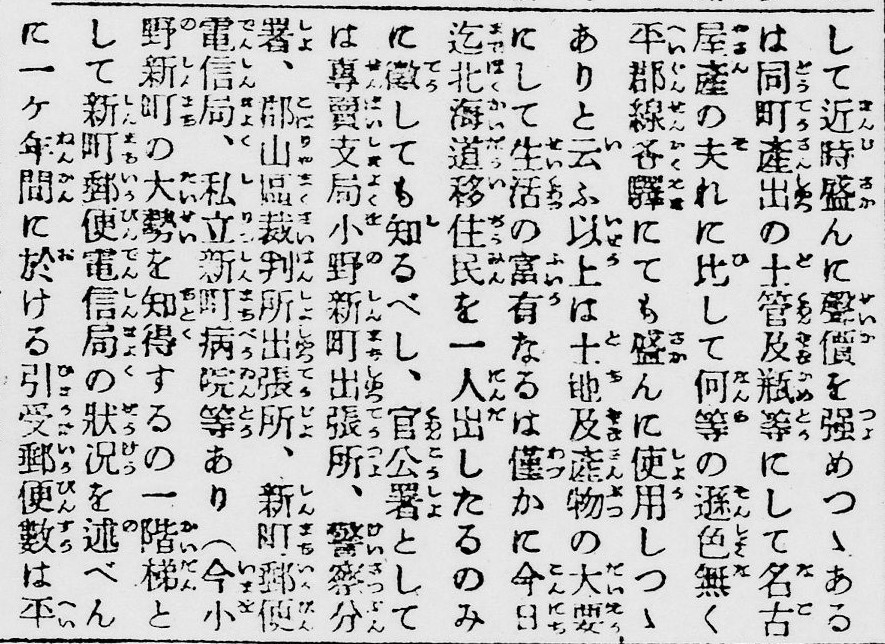 して近時盛んに聲價を强めつゝある
は同町產出の土管及瓶等にして名古
屋產の夫れに比して何等の遜色無く
平郡線各驛にても盛んに使用しつゝ
ありと云ふ以上は土地及產物の大要
にして生活の富有なるは僅かに今日
迄北海道移住民を一人出したるのみ
に徵しても知るべし、官公署として
は專賣支局小野新町出張所、警察分
署、郡山區裁判所出張所、新町郵便
電信局、私立新町病院等あり（今小
野新町の大勢を知得するの一階梯と
して新町郵便電信局の狀況を述べん
に一ヶ年間に於ける引受郵便數は平